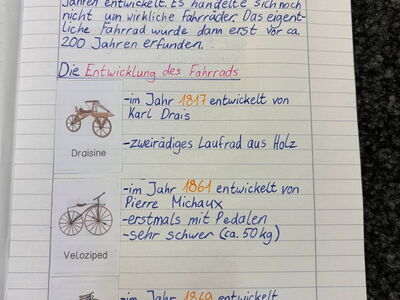 Jahren entwickelt. Es handelte sich noch
nicht um wirkliche Fahrräder. Das eigent-
liche Fahrrad wurde dann erst vor ca.
200 Jahren erfunden.
Die Entwicklung des Fahrrads
-im Jahr 1817 entwickelt von
Karl Drais
-zweirädiges Laufrad aus Holz
Draisine
-im Jahr 1861 entwickelt von
Pierre Michaux
-erstmals mit Pedalen
-sehr schwer (ca. 50 kg)
Veloziped
-im Jahr 1869 entwickelt